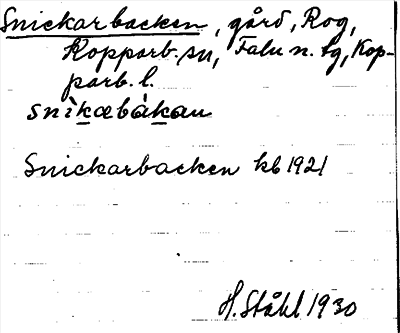 Snickarbacken, gård, Rog,
Kopparb. sn, Falu n. tg, Kop-
parb. l.
snìkæbàkan
Snickarbacken kb 1921
H. Ståhl 1930